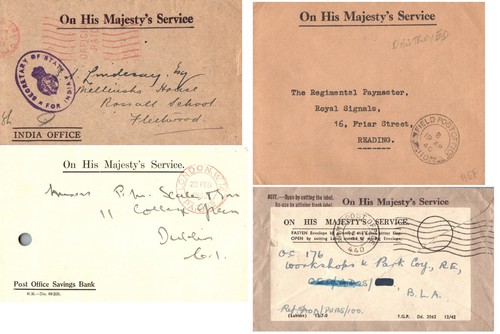 On His Majesty's Service
SECRETARY OF STATE FOR
Lindesay, Esq
House
Rossall School
Fleetwood.
INDIA OFFICE
On His Majesty's Service
DESTROYED
The Regimental Paymaster,
Royal Signals,
16, Friar Street,
READING.
FIELD POST OFFICE
BEF
On His Majesty's Service.
LONDON W
FEB
Messrs P. M.
11 College Green
Dublin
Post Office Savings Bank
NOTE.—Open by cutting the label.
Re-use by affixing fresh label.
On His Majesty's Service
ON HIS MAJESTY'S SERVICE.
FASTEN Envelope by
OPEN by cutting
O.C. 176
Workshops & Park Coy, R.E,
B.L.A.